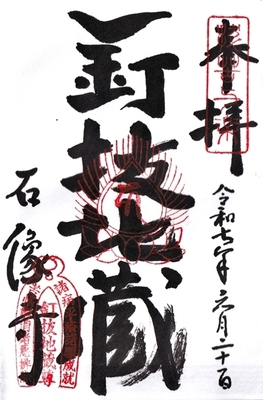 奉拝
令和七年六月二十日
釘抜地蔵
石像寺